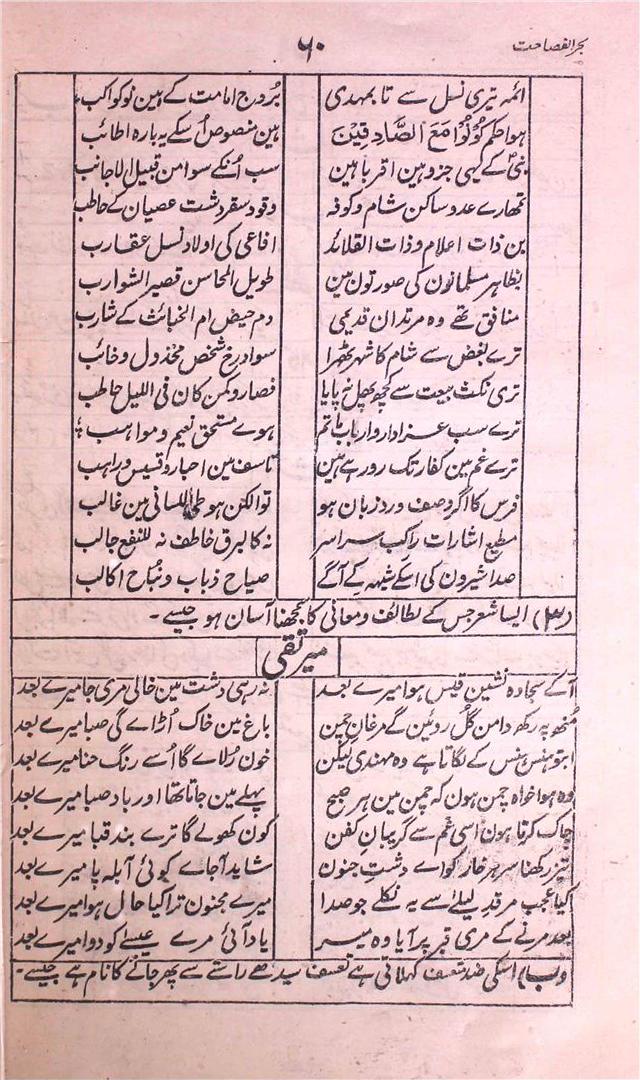 بحر الفصاحت
۶۰
ائمہ تیری نسل سے تا بمہدی بروج امامت کے ہین نو کواکب
ہوا حکم کُوْنُوْا مَعَ الصَّادِقِیْنَ ہین منصوص اُسکے یہ بارہ اطائب
نبیؐ کے کہی جزو ہین اقربا ہین سب اُنکے سوا من قبیل الاجانب
تمھارے عدو ساکن شام و کوفہ وقود سقر دشت عصیان کے حاطب
بن ذات اعلام و ذات القلائد افاعی کی اولاد نسل عقارب
بظاہر مسلمانون کی صورتون مین طویل المحاسن قصیر الشوارب
منافق تھے وہ مرتدان قدیمی دم حیض ام الخبائث کے شارب
ترے بغض سے شام کا شہر ٹھرا سواد رخ شخص مخذول و خائب
تری نکث بیعت سے کچھ پھل نہ پایا فصاروا کمن کان فی اللیل حاطب
ترے سب عزادار و ارباب ماتم ہوے مستحق نعیم و مواہب
ترے غم مین کفار تک رو رہے ہین تاسف مین احبار و قسیس و راہب
فرس کا اگر وصف ورد زبان ہو تو الکن ہو طی اللسانی مین غالب
مطیع اشارات راکب سراسر نہ کالبرق خاطف نہ للنفع جالب
صدا شیرون کی اسکے شیہہ کے آگے صیاح ذباب و نُباح اکالب
(۳) ایسا شعر جس کے لطائف و معانی کا سمجھنا آسان ہو جیسے ۔
میر تقی
آکے سجادہ نشین قیس ہوا میرے بعد نہ رہی دشت مین خالی مری جا میرے بعد
مُنھ پہ رکھ دامن گل روئین گے مرغان چمن باغ مین خاک اُڑاے گی صبا میرے بعد
ابتو ہنس ہنس کے لگاتا ہے وہ مہندی لیکن خون رُلاے گا اُسے رنگ حنا میرے بعد
وہ ہوا خواہ چمن ہون کہ چمن مین ہر صبح پہلے مین جاتا تھا اور باد صبا میرے بعد
چاک کرتا ہون اسی غم سے گریبان کفن کون کھولے گا ترے بند قبا میرے بعد
تیز رکھنا سر ہر خار کو اے دشت جنون شاید آجاے کوئی آبلہ پا میرے بعد
کیا عجب مرقد لیلےٰ سے یہ نکلے جو صدا میرے مجنون ترا کیا حال ہوا میرے بعد
بعد مرنے کے مری قبر پر آیا وہ میر یاد آئی مرے عیسےٰ کو دوا میرے بعد
(ب) اسکی ضد تعسف کہلاتی ہے تعسف سیدھے راستے سے پھر جانے کا نام ہے جیسے ۔